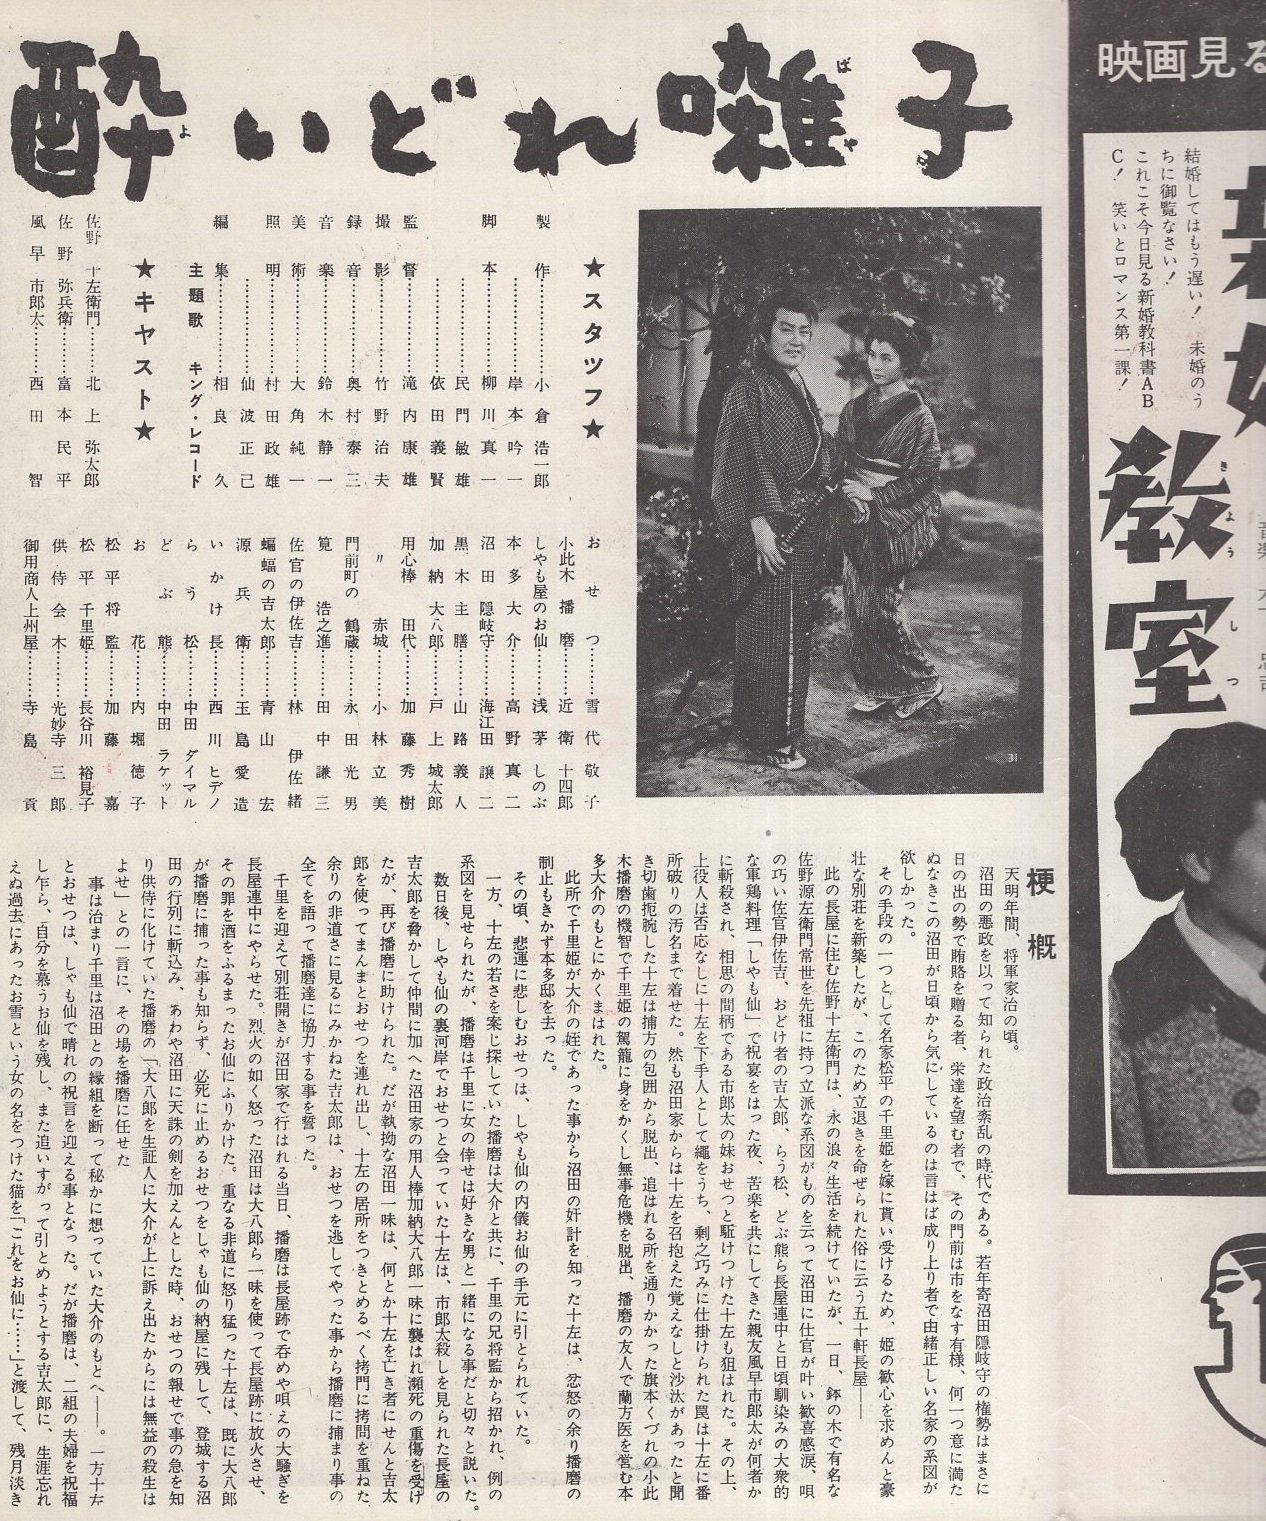 酔いどれ囃子
よ
ばやし
★スタッフ★
製作……………小倉浩一郎
……………岸本吟一
脚本……………柳川真一
……………民門敏雄
……………依田義賢
監督……………滝内康雄
撮影……………竹野治夫
録音……………奥村泰三
音楽……………鈴木静一
美術……………大角純一
照明……………村田政雄
……………仙波正己
編集……………相良久
主題歌 キング・レコード
★キヤスト★
佐野十左衛門………北上弥太郎
佐野弥兵衛………富本民平
風早市郎太………西田智
おせつ………雪代敬子
小此木播磨………近衛十四郎
しやも屋のお仙………浅茅しのぶ
本多大介………高野真二
沼田隠岐守………海江田譲二
黒木主膳………山路義人
加納大八郎………戸上城太郎
用心棒 田代………加藤秀樹
〃 赤城………小林立美
門前町の鶴蔵………永田光男
筧浩之進………田中謙三
佐官の伊佐吉………林伊佐緒
蝙蝠の吉太郎………青山宏
源兵衛………玉島愛造
いかけ長………西川ヒデノ
らう松………中田ダイマル
どぶ熊………中田ラケット
お花………内堀徳子
松平将監………加藤嘉
松平千里姫………長谷川裕見子
供侍会木………光妙寺三郎
御用商人上州屋………寺島貢
31
梗概
天明年間、将軍家治の頃。
沼田の悪政を以って知られた政治紊乱の時代である。若年寄沼田隠岐守の権勢はまさに
日の出の勢で賄賂を贈る者、栄達を望む者で、その門前は市をなす有様、何一つ意に満た
ぬなきこの沼田が日頃から気にしているのは言はば成り上り者で由緒正しい名家の系図が
欲しかった。
その手段の一つとして名家松平の千里姫を嫁に貰い受けるため、姫の歓心を求めんと豪
壮な別荘を新築したが、このため立退きを命ぜられた俗に云う五十軒長屋――
此の長屋に住む佐野十左衛門は、永の浪々生活を続けていたが、一日、鉢の木で有名な
佐野源左衛門常世を先祖に持つ立派な系図がものを云って沼田に仕官が叶い歓喜感涙、唄
の巧い佐官伊佐吉、おどけ者の吉太郎、らう松、どぶ熊ら長屋連中と日頃馴染みの大衆的
な軍鶏料理「しやも仙」で祝宴をはった夜、苦楽を共にしてきた親友風早市郎太が何者か
に斬殺され、相思の間柄である市郎太の妹おせつと駈けつけた十左も狙はれた。その上、
上役人は否応なしに十左を下手人として縄をうち、剰之巧みに仕掛けられた罠は十左に番
所破りの汚名まで着せた。然も沼田家からは十左を召抱えた覚えなしと沙汰があったと聞
き切歯扼腕した十左は捕方の包囲から脱出、追はれる所を通りかかった旗本くづれの小此
木播磨の機智で千里姫の駕籠に身をかくし無事危機を脱出、播磨の友人で蘭方医を営む本
多大介のもとにかくまはれた。
此所で千里姫が大介の姪であった事から沼田の奸計を知った十左は、忿怒の余り播磨の
制止もきかず本多邸を去った。
その頃、悲運に悲しむおせつは、しやも仙の内儀お仙の手元に引とられていた。
一方、十左の若さを案じ探していた播磨は大介と共に、千里の兄将監から招かれ、例の
系図を見せられたが、播磨は千里に女の倖せは好きな男と一緒になる事だと切々と説いた。
数日後、しやも仙の裏河岸でおせつと会っていた十左は、市郎太殺しを見られた長屋の
吉太郎を脅かして仲間に加へた沼田家の用人棒加納大八郎一味に襲はれ瀕死の重傷を受け
たが、再び播磨に助けられた。だが執拗な沼田一味は、何とか十左を亡き者にせんと吉太
郎を使ってまんまとおせつを連れ出し、十左の居所をつきとめるべく拷問に拷問を重ねた
余りの非道さに見るにみかねた吉太郎は、おせつを逃してやった事から播磨に捕まり事の
全てを語って播磨達に協力する事を誓った。
千里を迎えて別荘開きが沼田家で行はれる当日、播磨は長屋跡で呑めや唄えの大騒ぎを
長屋連中にやらせた。烈火の如く怒った沼田は大八郎ら一味を使って長屋跡に放火させ、
その罪を酒をふるまったお仙にふりかけた。重なる非道に怒り猛った十左は、既に大八郎
が播磨に捕った事も知らず、必死に止めるおせつをしゃも仙の納屋に残して、登城する沼
田の行列に斬込み、あわや沼田に天誅の剣を加えんとした時、おせつの報せで事の急を知
り供侍に化けていた播磨の「大八郎を生証人に大介が上に訴え出たからには無益の殺生は
よせ」との一言に、その場を播磨に任せた
事は治まり千里は沼田との縁組を断って秘かに想っていた大介のもとへ――。一方十左
とおせつは、しゃも仙で晴れの祝言を迎える事となった。だが播磨は、二組の夫婦を祝福
し乍ら、自分を慕うお仙を残し、また追いすがって引とめようとする吉太郎に、生涯忘れ
えぬ過去にあったお雪という女の名をつけた猫を「これをお仙に……」と渡して、残月淡き
映画見る
結婚してはもう遅い! 未婚のう
ちに御覧なさい!
これこそ今日見る新婚教科書AB
C! 笑いとロマンス第一課!
教室
きようしつ